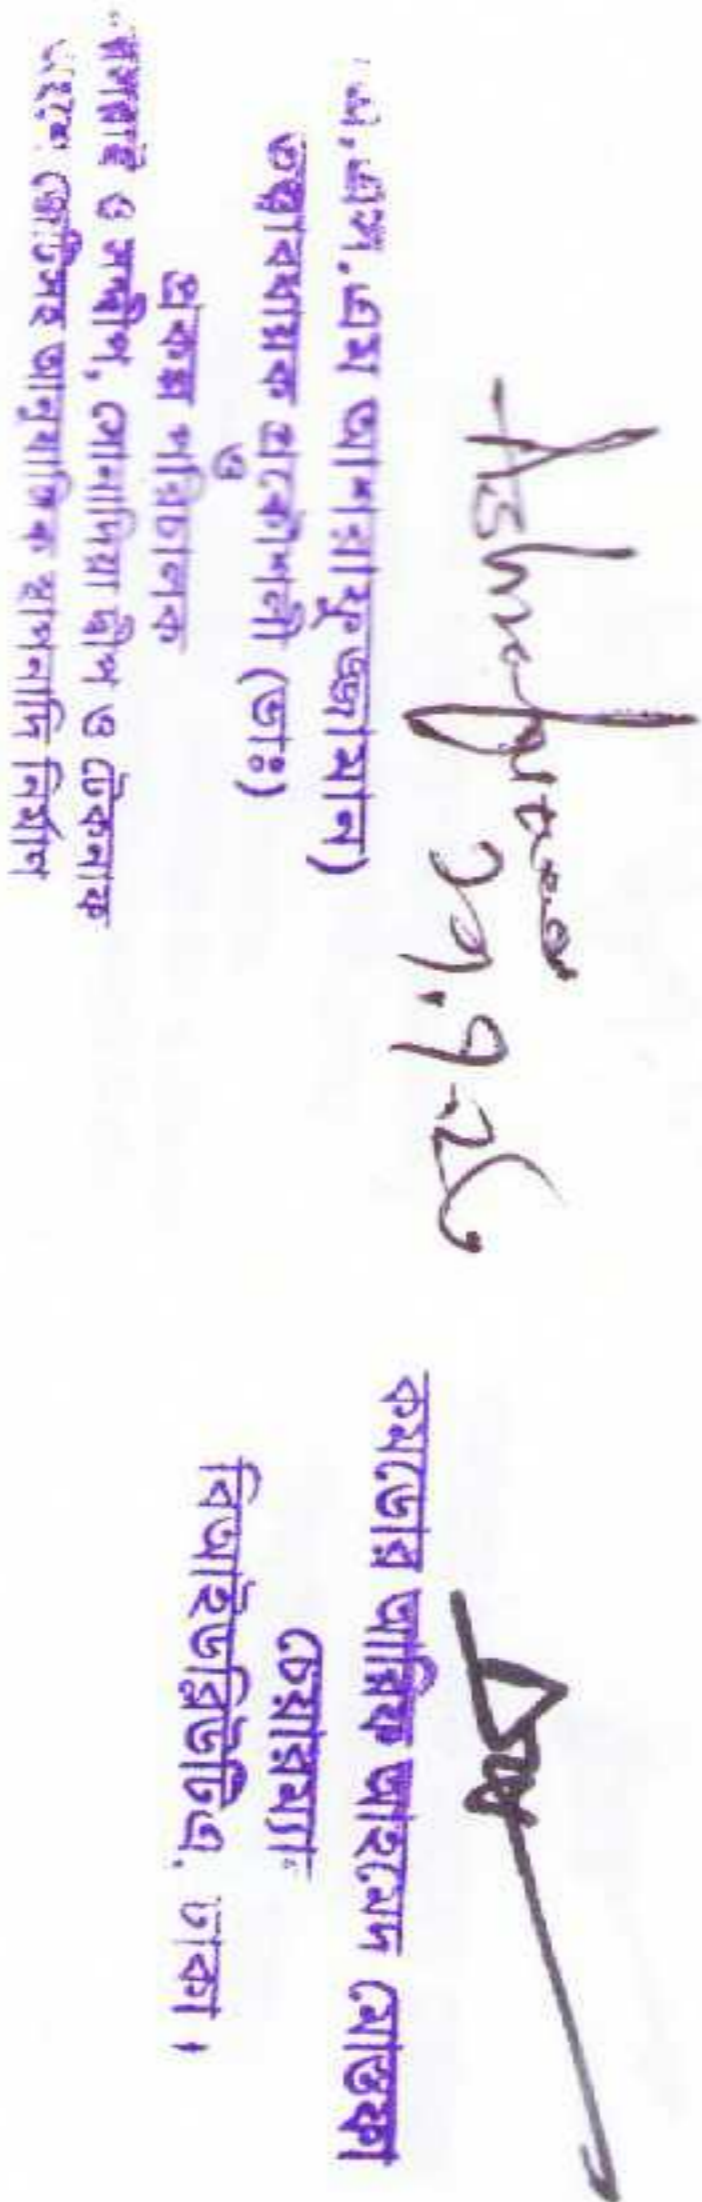 Ashrafuzzaman
২৭.৭.২৫
এ.এস.এম আশরাফুজ্জামান)
তত্ত্বাবধায়ক প্রকৌশলী (ভাঃ)
ও
প্রকল্প পরিচালক
ও সন্দ্বীপ, সোনাদিয়া দ্বীপ ও টেকনাফ
জেটিসহ আনুষাঙ্গিক স্থাপনাদি নির্মাণ
কমডোর আরিফ আহমেদ মোস্তফা
চেয়ারম্যা
বিআইডব্লিউটিএ, ঢাকা।